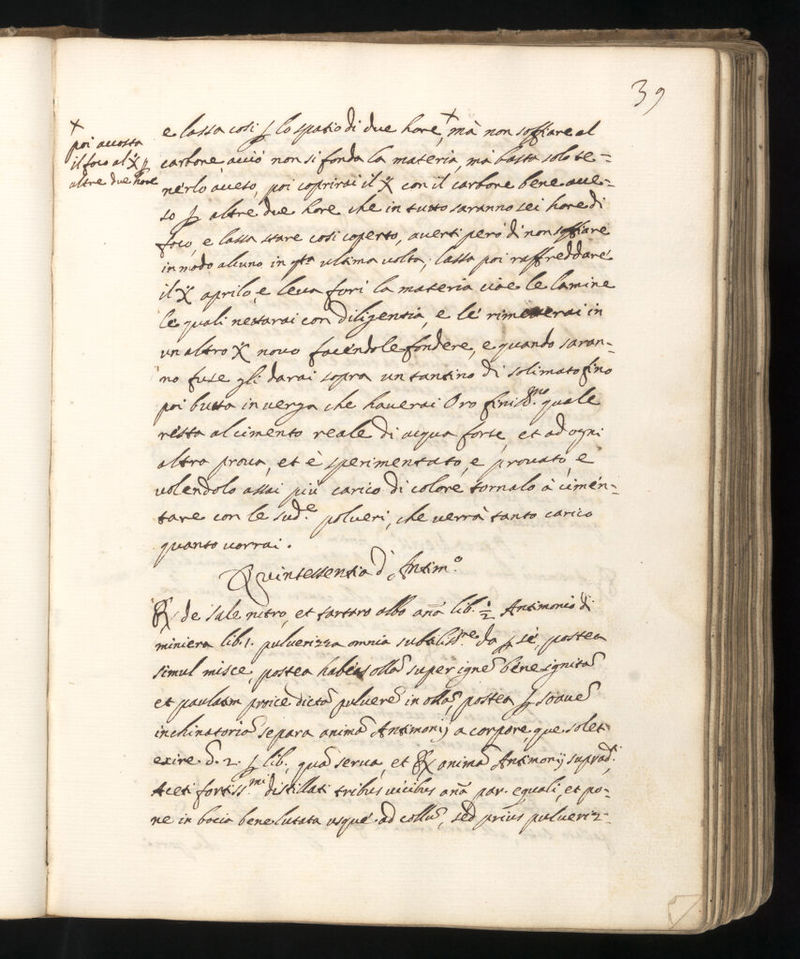 39
+
poi accosta
il foco al X p
altre due hore
e lassa cosi p lo spatio di due hore,+ mà non soffiare al
carbone acciò non si fonda la materia, mà basta solo te=
nerlo acceso, poi coprirai il X con il carbone bene acce=
so p altre due hore che in tutto saranno sei hore di
foco, e lassa stare cosi coperto, averti però di non soffiare
in modo alcuno in qta ultima volta; lassa poi raffreddare
il X aprilo, e leva fori la materia cioè le lamine
le quali nettarai con diligentia, e le rimetterai in
un altro X novo facendole fondere, e quando saran=
no fuse gli darai sopra un tantino di solimato fino
poi butta in verga che haverai Oro finissmo quale
resta al cimento reale di acqua forte, et ad ogni
altra prova, et è sperimentato, e provato, e
volendolo assai più carico di colore tornalo à cimen=
tare con le sude polveri, che verrà tanto carico
quanto vorrai.
Quintessentia d'Antimo
℞ de sale nitro, et tartaro albo anā lib. ½ Antimonio di
miniera lib. 1. pulverizza omnia subtalissme da p sé, postea
simul misce, postea habeas ollā super ignē bene ignitā
et paulatim proice dictā pulverē in ollā, postea p soavē
inclinationē separa animā Antimonij a corpore, que solet
exire 2. p lib., quā serva, et ℞ animā Antimonij supradi
Aceti fortissmi distillati tribus vicibus anā par. equali, et po=
ne in bocia bene lutata usque ad collū, sed prius pulveriz=